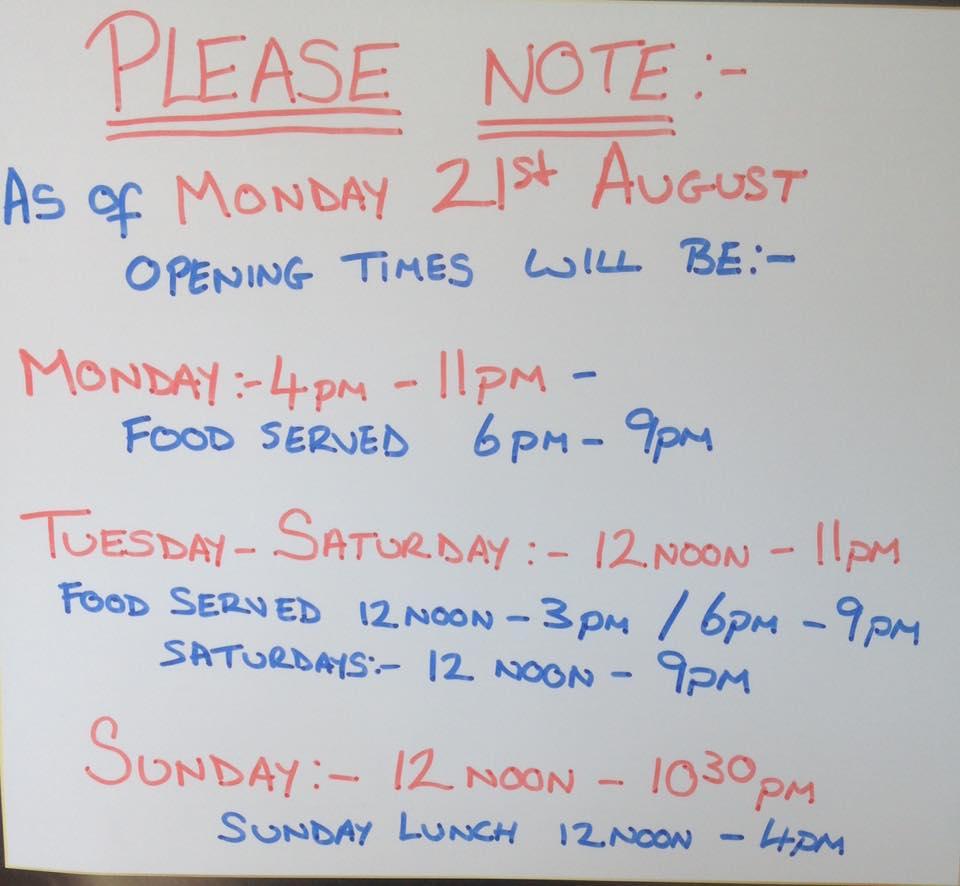 PLEASE NOTE:-
AS OF MONDAY 21st AUGUST
OPENING TIMES WILL BE:-
MONDAY:- 4PM - 11PM -
FOOD SERVED 6PM - 9PM
TUESDAY - SATURDAY:- 12 NOON - 11PM
FOOD SERVED 12 NOON - 3PM / 6PM - 9PM
SATURDAYS:- 12 NOON - 9PM
SUNDAY:- 12 NOON - 1030PM
SUNDAY LUNCH 12 NOON - 4PM